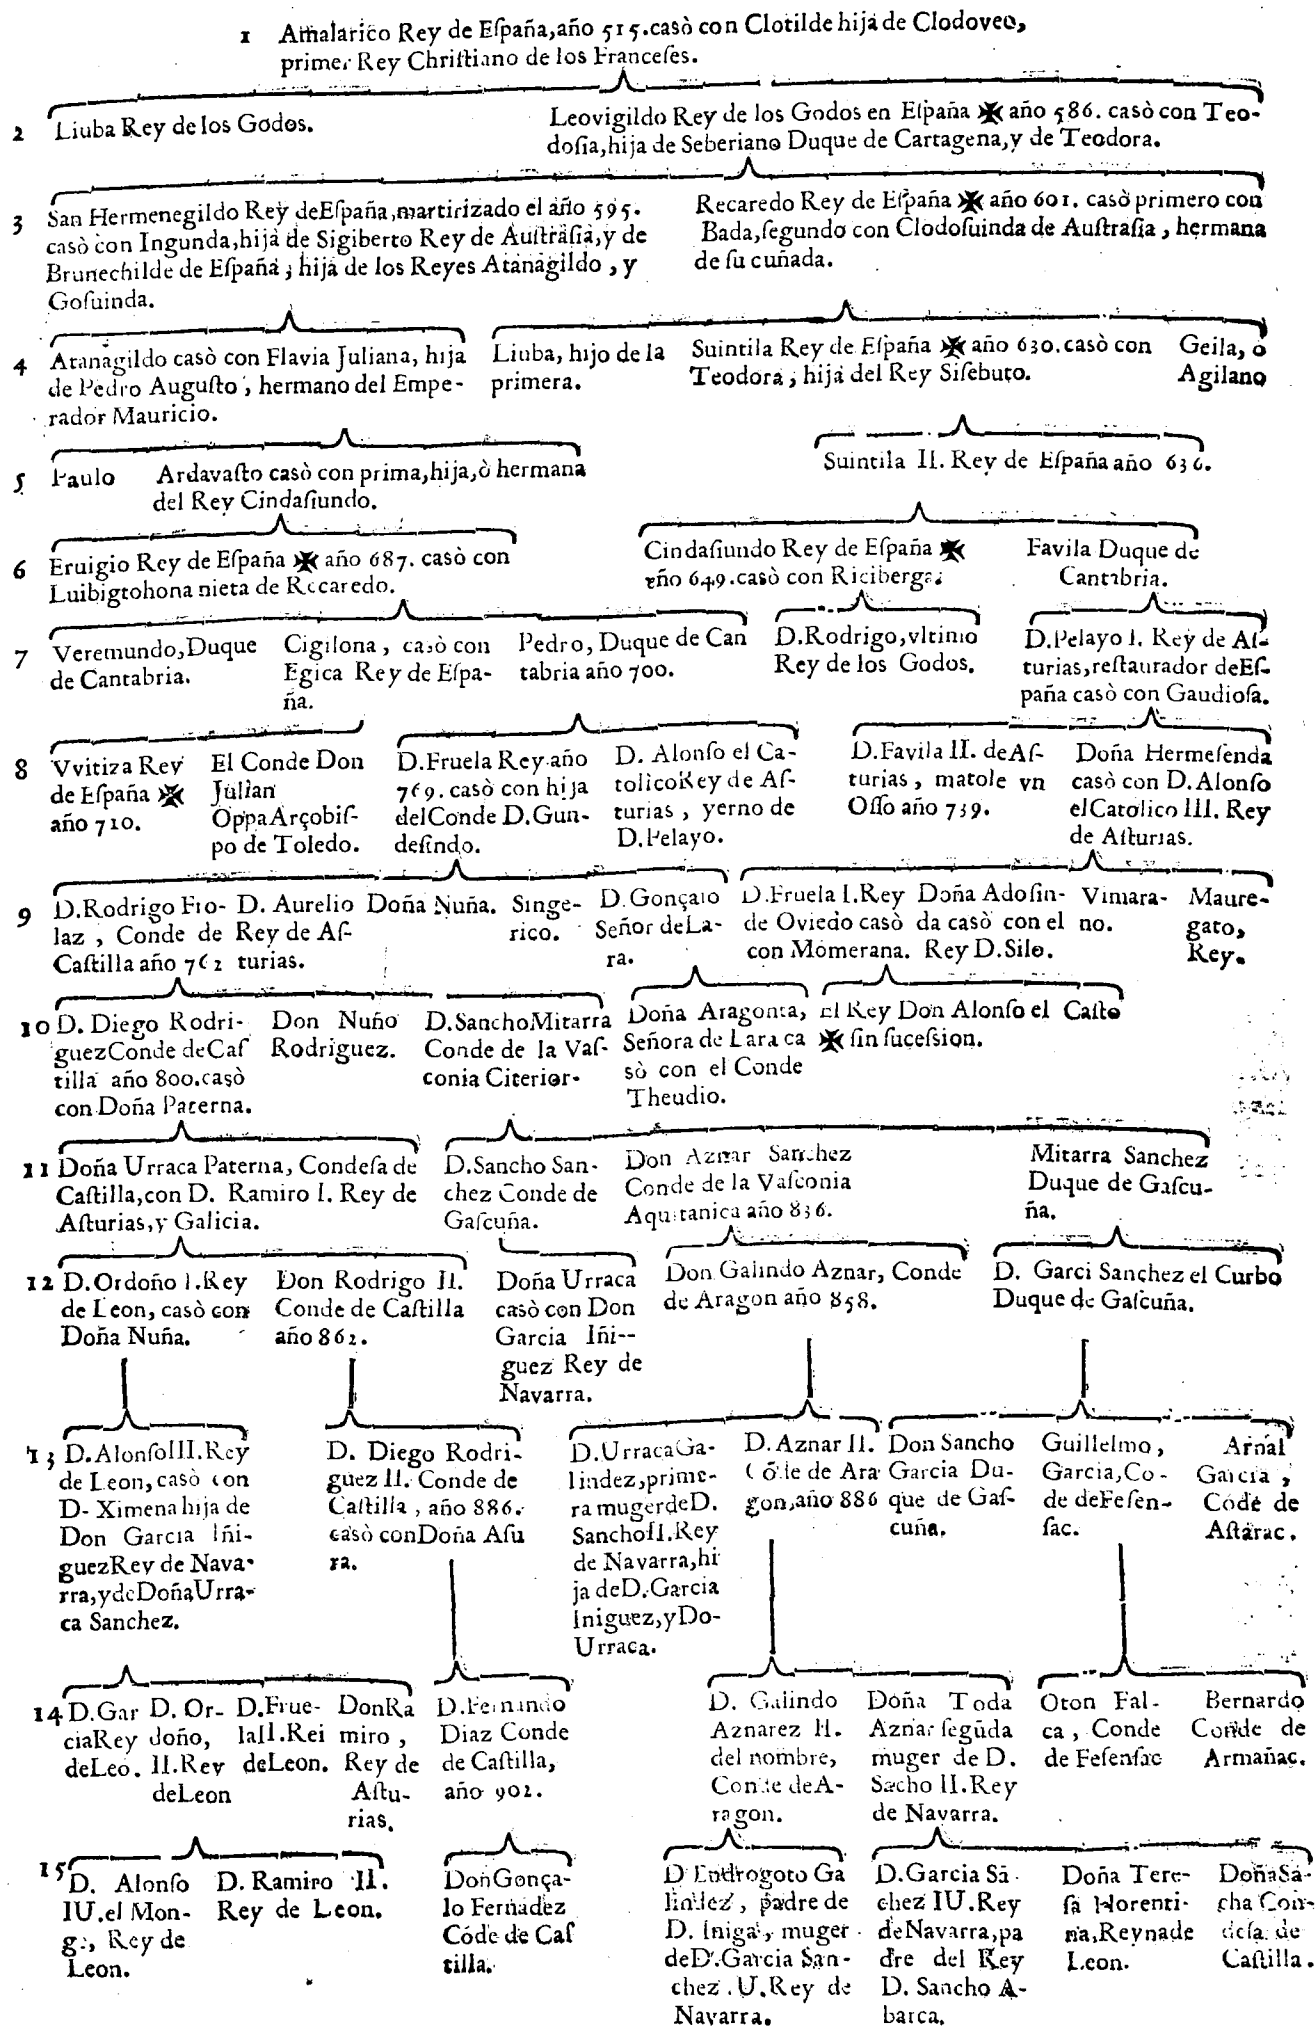 1 Amalarico Rey de Eſpaña,año 515.casò con Clotilde hija de Clodoveo,
primer Rey Chriſtiano de los Franceſes.
2 Liuba Rey de los Godos.
Leovigildo Rey de los Godos en Eſpaña ✠ año 586. casò con Teo-
doſia,hija de Seberiano Duque de Cartagena,y de Teodora.
3 San Hermenegildo Rey deEſpaña,martirizado el año 595.
casò con Ingunda,hija de Sigiberto Rey de Auſtraſia,y de
Brunechilde de Eſpaña; hija de los Reyes Atanagildo , y
Goſuinda.
Recaredo Rey de Eſpaña ✠ año 601. casò primero con
Bada,ſegundo con Clodoſuinda de Auſtraſia , hermana
de ſu cuñada.
4 Atanagildo casò con Flavia Juliana, hija
de Pedro Auguſto , hermano del Empe-
rador Mauricio.
Liuba, hijo de la
primera.
Suintila Rey de Eſpaña ✠ año 630.casò con
Teodora , hija del Rey Siſebuto.
Geila, ò
Agilano
5 Paulo
Ardavaſto casò con prima,hija,ò hermana
del Rey Cindaſiundo.
Suintila II. Rey de Eſpaña año 636.
6 Eruigio Rey de Eſpaña ✠ año 687. casò con
Luibigtohona nieta de Recaredo.
Cindaſiundo Rey de Eſpaña ✠
año 649.casò con Riciberga.
Favila Duque de
Cantabria.
7 Veremundo,Duque
de Cantabria.
Cigilona , casò con
Egica Rey de Eſpa-
ña.
Pedro, Duque de Can
tabria año 700.
D.Rodrigo,vltimo
Rey de los Godos.
D.Pelayo I. Rey de Aſ-
turias,reſtaurador deEſ-
paña casò con Gaudioſa.
8 Vvitiza Rey
de Eſpaña ✠
año 710.
El Conde Don
Julian
OppaArçobiſ-
po de Toledo.
D.Fruela Rey año
769. casò con hija
delConde D.Gun-
deſindo.
D. Alonſo el Ca-
tolicoRey de Aſ-
turias , yerno de
D.Pelayo.
D.Favila II. deAſ-
turias , matole vn
Oſſo año 739.
Doña Hermeſenda
casò con D. Alonſo
elCatolico III. Rey
de Aſturias.
9 D.Rodrigo Fro-
laz , Conde de
Caſtilla año 762
D. Aurelio
Rey de Aſ-
turias.
Doña Nuña.
Singe-
rico.
D.Gonçalo
Señor deLa-
ra.
D.Fruela I.Rey
de Oviedo casò
con Momerana.
Doña Adoſin-
da casò con el
Rey D.Silo.
Vimara-
no.
Maure-
gato,
Rey.
10 D. Diego Rodri-
guezConde deCaſ
tilla año 800.casò
con Doña Paterna.
Don Nuño
Rodriguez.
D.SanchoMitarra
Conde de la Vaſ-
conia Citerior.
Doña Aragonta,
Señora de Lara ca
sò con el Conde
Theudio.
El Rey Don Alonſo el Caſto
✠ ſin ſuceſsion.
11 Doña Urraca Paterna, Condeſa de
Caſtilla,con D. Ramiro I. Rey de
Aſturias,y Galicia.
D.Sancho San-
chez Conde de
Gaſcuña.
Don Aznar Sanchez
Conde de la Vaſconia
Aquitanica año 836.
Mitarra Sanchez
Duque de Gaſcu-
ña.
12 D.Ordoño I.Rey
de Leon, casò con
Doña Nuña.
Don Rodrigo II.
Conde de Caſtilla
año 862.
Doña Urraca
casò con Don
Garcia Iñi--
guez Rey de
Navarra.
Don Galindo Aznar, Conde
de Aragon año 858.
D. Garci Sanchez el Curbo
Duque de Gaſcuña.
13 D.AlonſoIII.Rey
de Leon, casò con
D- Ximena hija de
Don Garcia Iñi-
guezRey de Nava-
rra,ydeDoñaUrra-
ca Sanchez.
D. Diego Rodri-
guez II. Conde de
Caſtilla , año 886.
casò conDoña Aſu
ra.
D.UrracaGa-
lindez,prime-
ra mugerdeD.
SanchoII.Rey
de Navarra,hi
ja deD.Garcia
Iniguez,yDo-
Urraca.
D. Aznar II.
Cõde de Ara
gon,año 886
Don Sancho
Garcia Du-
que de Gaſ-
cuña.
Guillelmo,
Garcia,Co-
de deFeſen-
ſac.
Arnal
Garcia ,
Códe de
Aſtarac.
14 D.Gar
ciaRey
deLeo.
D. Or-
doño,
II.Rey
deLeon
D.Frue-
laII.Rei
deLeon.
DonRa
miro ,
Rey de
Aſtu-
rias.
D.Fernando
Diaz Conde
de Caſtilla,
año 902.
D. Galindo
Aznarez II.
del nombre,
Conde deA-
ragon.
Doña Toda
Aznar ſegũda
muger de D.
Sacho II.Rey
de Navarra.
Oton Fal-
ca , Conde
de Feſenſac
Bernardo
Conde de
Armañac.
15 D. Alonſo
IU.el Mon-
ge, Rey de
Leon.
D. Ramiro II.
Rey de Leon.
DonGonça-
lo Fernãdez
Códe de Caſ
tilla.
D Endrogoto Ga
lindez , padre de
D. Iniga , muger
deD.Garcia San-
chez .U.Rey de
Navarra.
D.Garcia Sã-
chez IU.Rey
deNavarra,pa
dre del Rey
D. Sancho A-
barca.
Doña Tere-
ſa Florenti-
na,Reynade
Leon.
DoñaSã-
cha Con-
deſa de
Caſtilla.